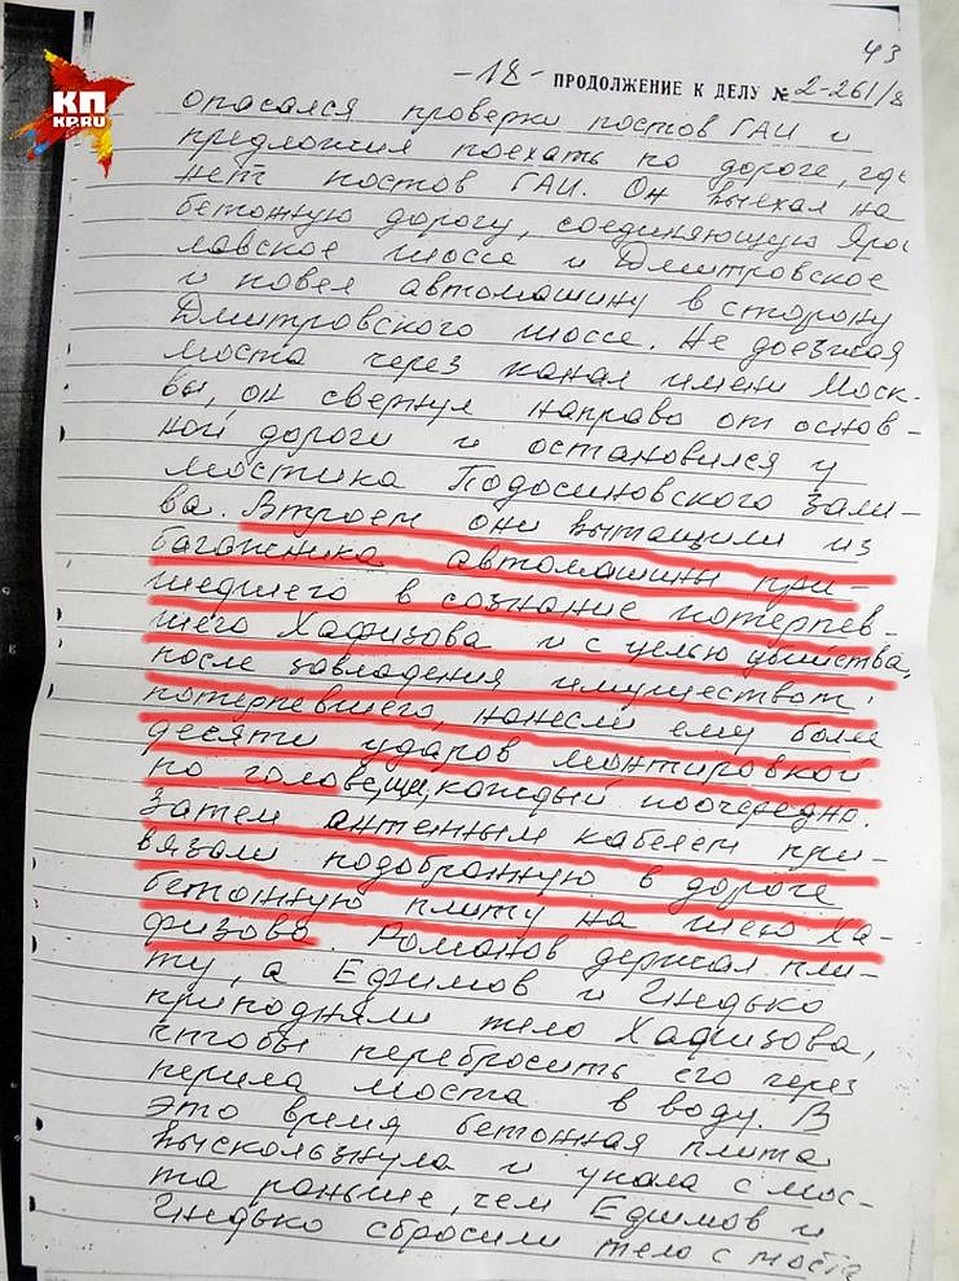 КП
KP.RU
43
-18- ПРОДОЛЖЕНИЕ К ДЕЛУ № 2-261/8
опасался проверки постов ГАИ и
предложил поехать по дороге, где
нет постов ГАИ. Он выехал на
бетонную дорогу, соединяющую Яро
лавское шоссе и Дмитровское
и повел автомашину в сторону
Дмитровского шоссе. Не доезжая
моста через канал имени Моск-
вы, он свернул направо от основ-
ной дороги и остановился у
мостика Подосиновского зали-
ва. Втроем они вытащили из
багажника автомашины при-
шедшего в сознание потерпев-
шего Хафизова и с целью убийства,
после завладения имуществом
потерпевшего, нанесли ему более
десяти ударов монтировкой
по голове, каждый поочередно.
Затем антенным кабелем при-
вязали подобранную в дороге
бетонную плиту на шею Ха-
физова. Романов держал пли-
ту, а Ефимов и Гнедько
приподняли тело Хафизова,
чтобы перебросить его через
перила моста в воду. В
это время бетонная плита
выскользнула и упала с мос-
та раньше, чем Ефимов и
Гнедько сбросили тело с моста